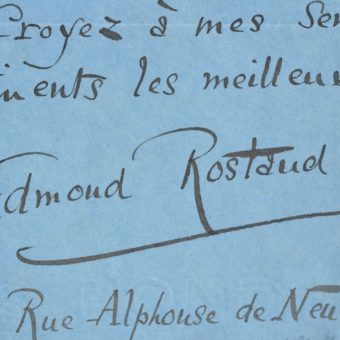 Croyez à mes Sen
timents les meilleur
Edmond Rostand
Rue Alphonse de Neu